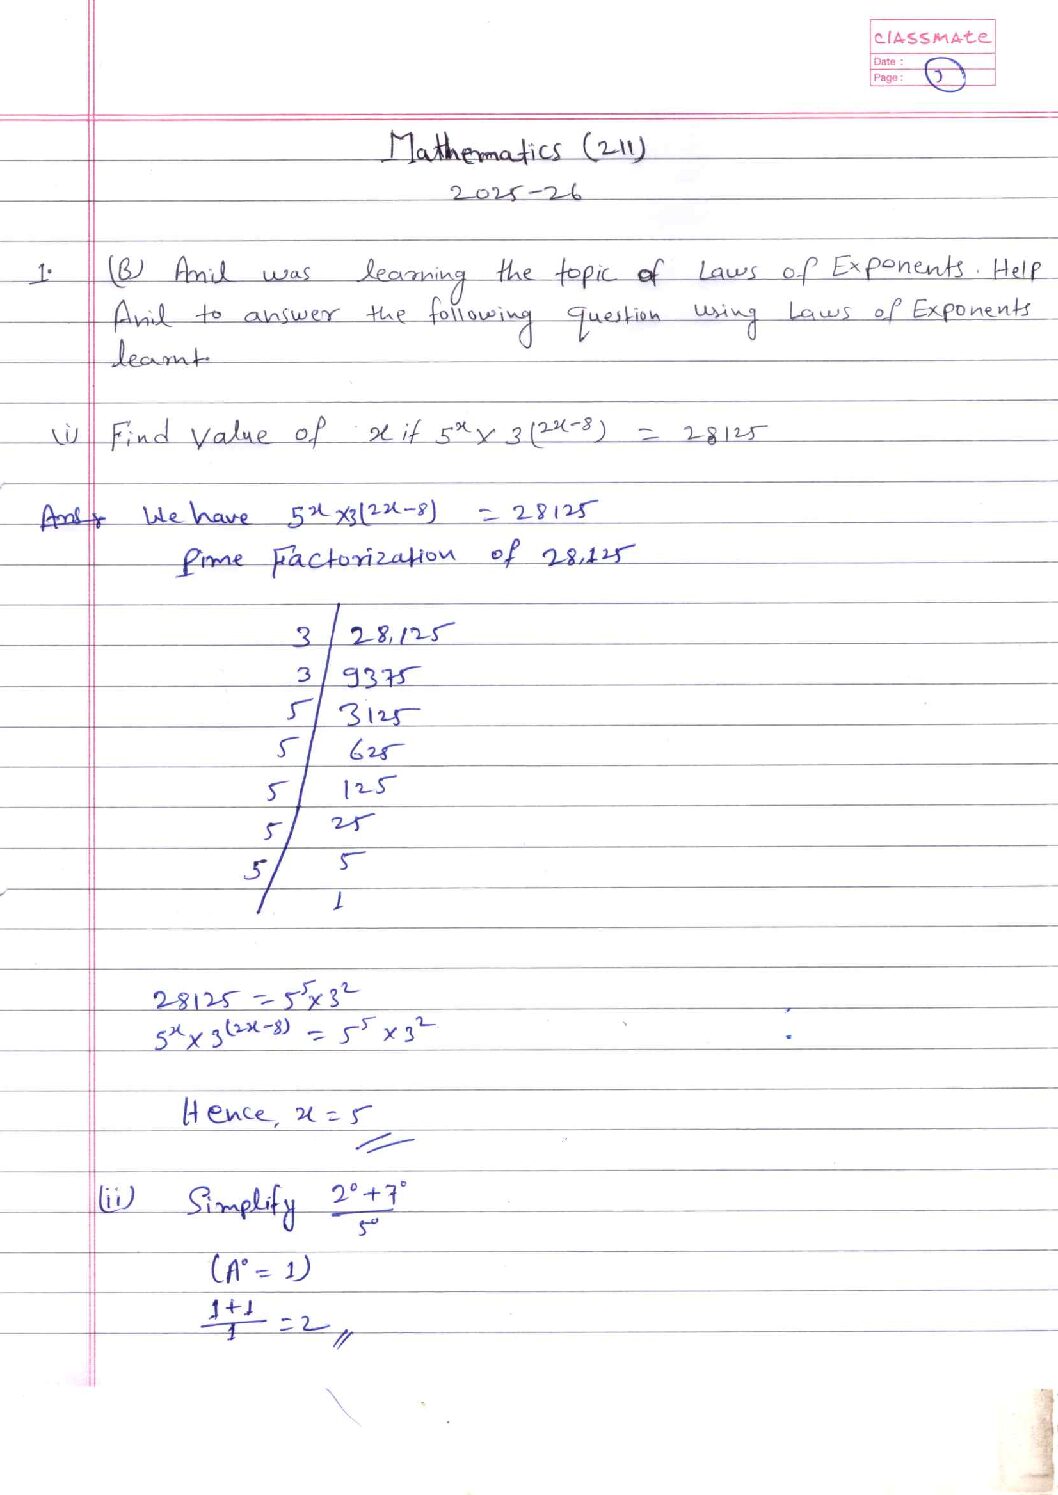 classmate
Date :
Page :
Mathematics (211)
2025-26
1. (B) Anil was learning the topic of Laws of Exponents. Help
Anil to answer the following question using Laws of Exponents
learnt.
(i) Find Value of x if 5^x × 3^(2x-8) = 28125
Ans We have 5^x ×3^(2x-8) = 28125
Pime Factorization of 28,125
3 | 28,125
3 | 9375
5 | 3125
5 | 625
5 | 125
5 | 25
5 | 5
1
28125 = 5^5 × 3^2
5^x × 3^(2x-8) = 5^5 × 3^2
Hence, x = 5
(ii) Simplify (2^0 + 7^0)/5^0
(A^0 = 1)
(1+1)/1 = 2